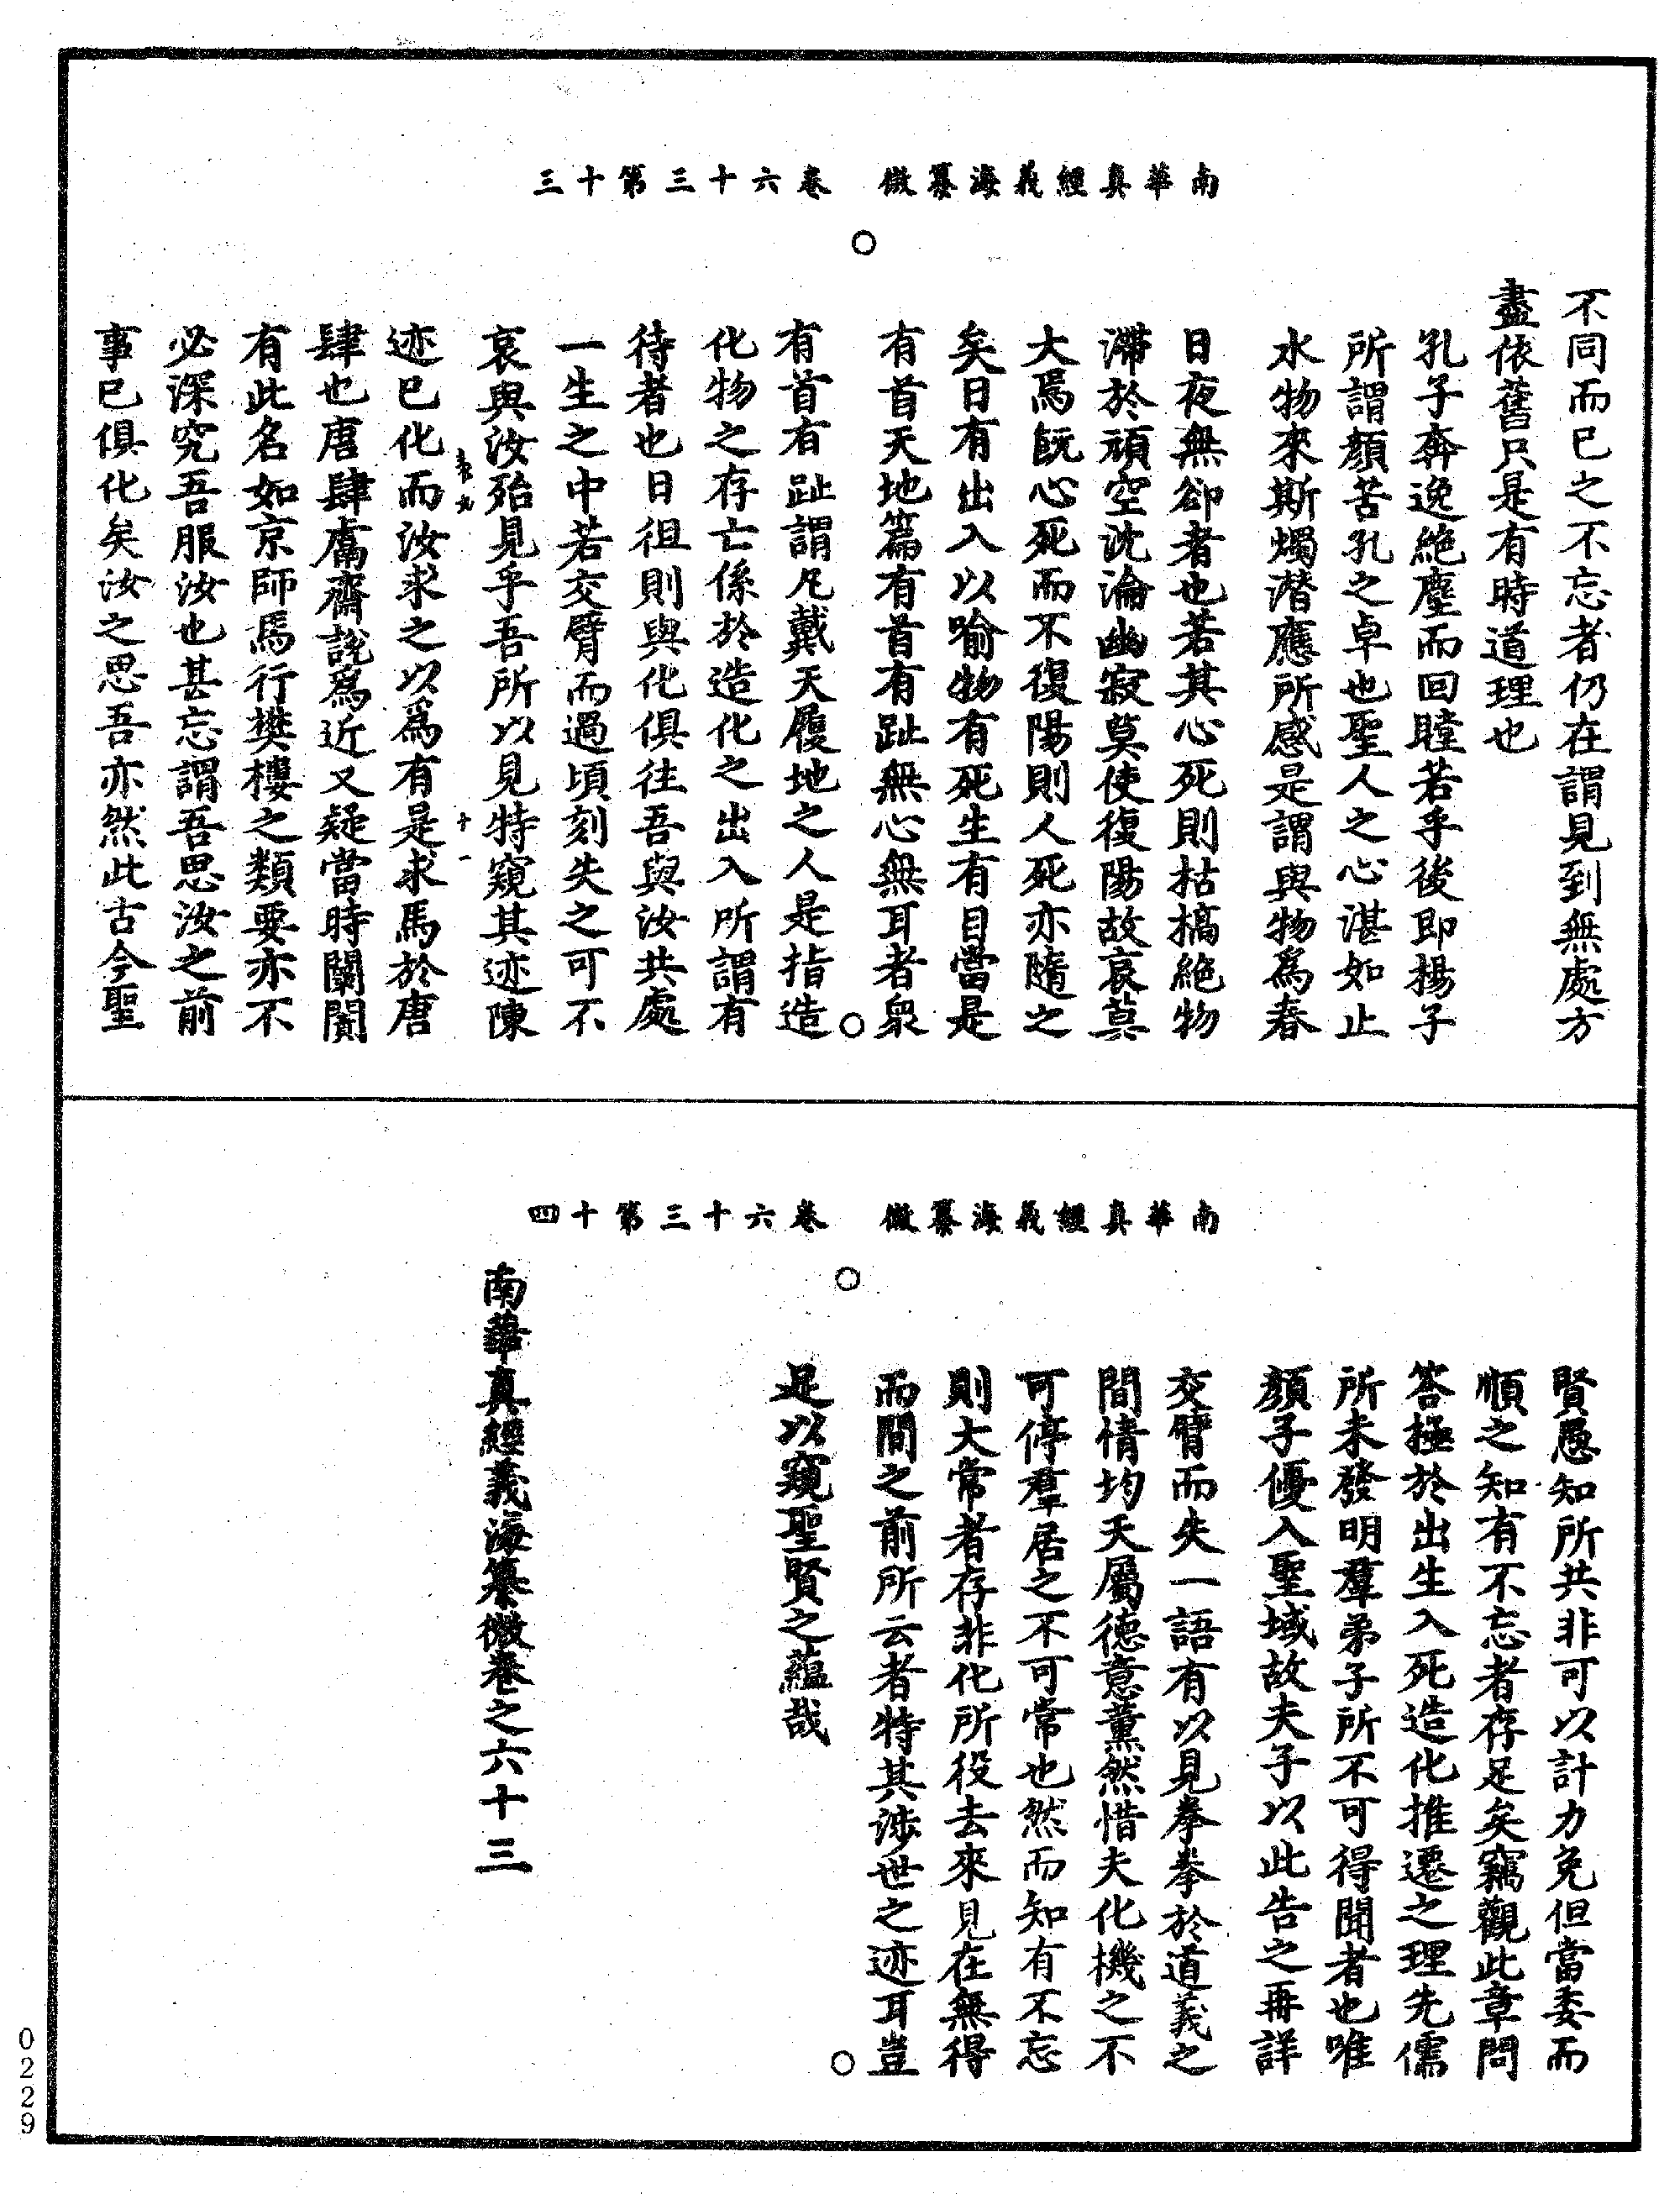 南華真經義海纂微　卷六十三第十三
不同而已之不忘者仍在謂見到無處方
盡依舊只是有時道理也
孔子奔逸絕塵而回瞠若乎後即揚子
所謂顏苦孔之卓也聖人之心湛如止
水物來斯燭潛應所感是謂與物為春
日夜無卻者也若其心死則枯槁絕物
滯於頑空沈淪幽寂莫使復陽故哀莫
大焉既心死而不復陽則人死亦隨之
矣日有出入以喻物有死生有目當是
有首天地篇有首有趾無心無耳者衆
有首有趾謂凡戴天履地之人是指造
化物之存亡係於造化之出入所謂有
待者也日徂則與化俱往吾與汝共處
一生之中若交臂而過頃刻失之可不
哀與汝殆見乎吾所以見特窺其迹陳
迹已化而汝求之以為有是求馬於唐
肆也唐肆鬳齋說為近又疑當時闤闠
有此名如京師馬行樊樓之類要亦不
必深究吾服汝也甚忘謂吾思汝之前
事已俱化矣汝之思吾亦然此古今聖
十一
南華真經義海纂微　卷六十三第十四
賢愚知所共非可以計力免但當委而
順之知有不忘者存足矣竊觀此章問
答極於出生入死造化推遷之理先儒
所未發明羣弟子所不可得聞者也唯
顏子優入聖域故夫子以此告之再詳
交臂而失一語有以見拳拳於道義之
間情均天屬德意薰然惜夫化機之不
可停羣居之不可常也然而知有不忘
則大常者存非化所役去來見在無得
而間之前所云者特其涉世之迹耳豈
足以窺聖賢之蘊哉
南華真經義海纂微卷之六十三
0229